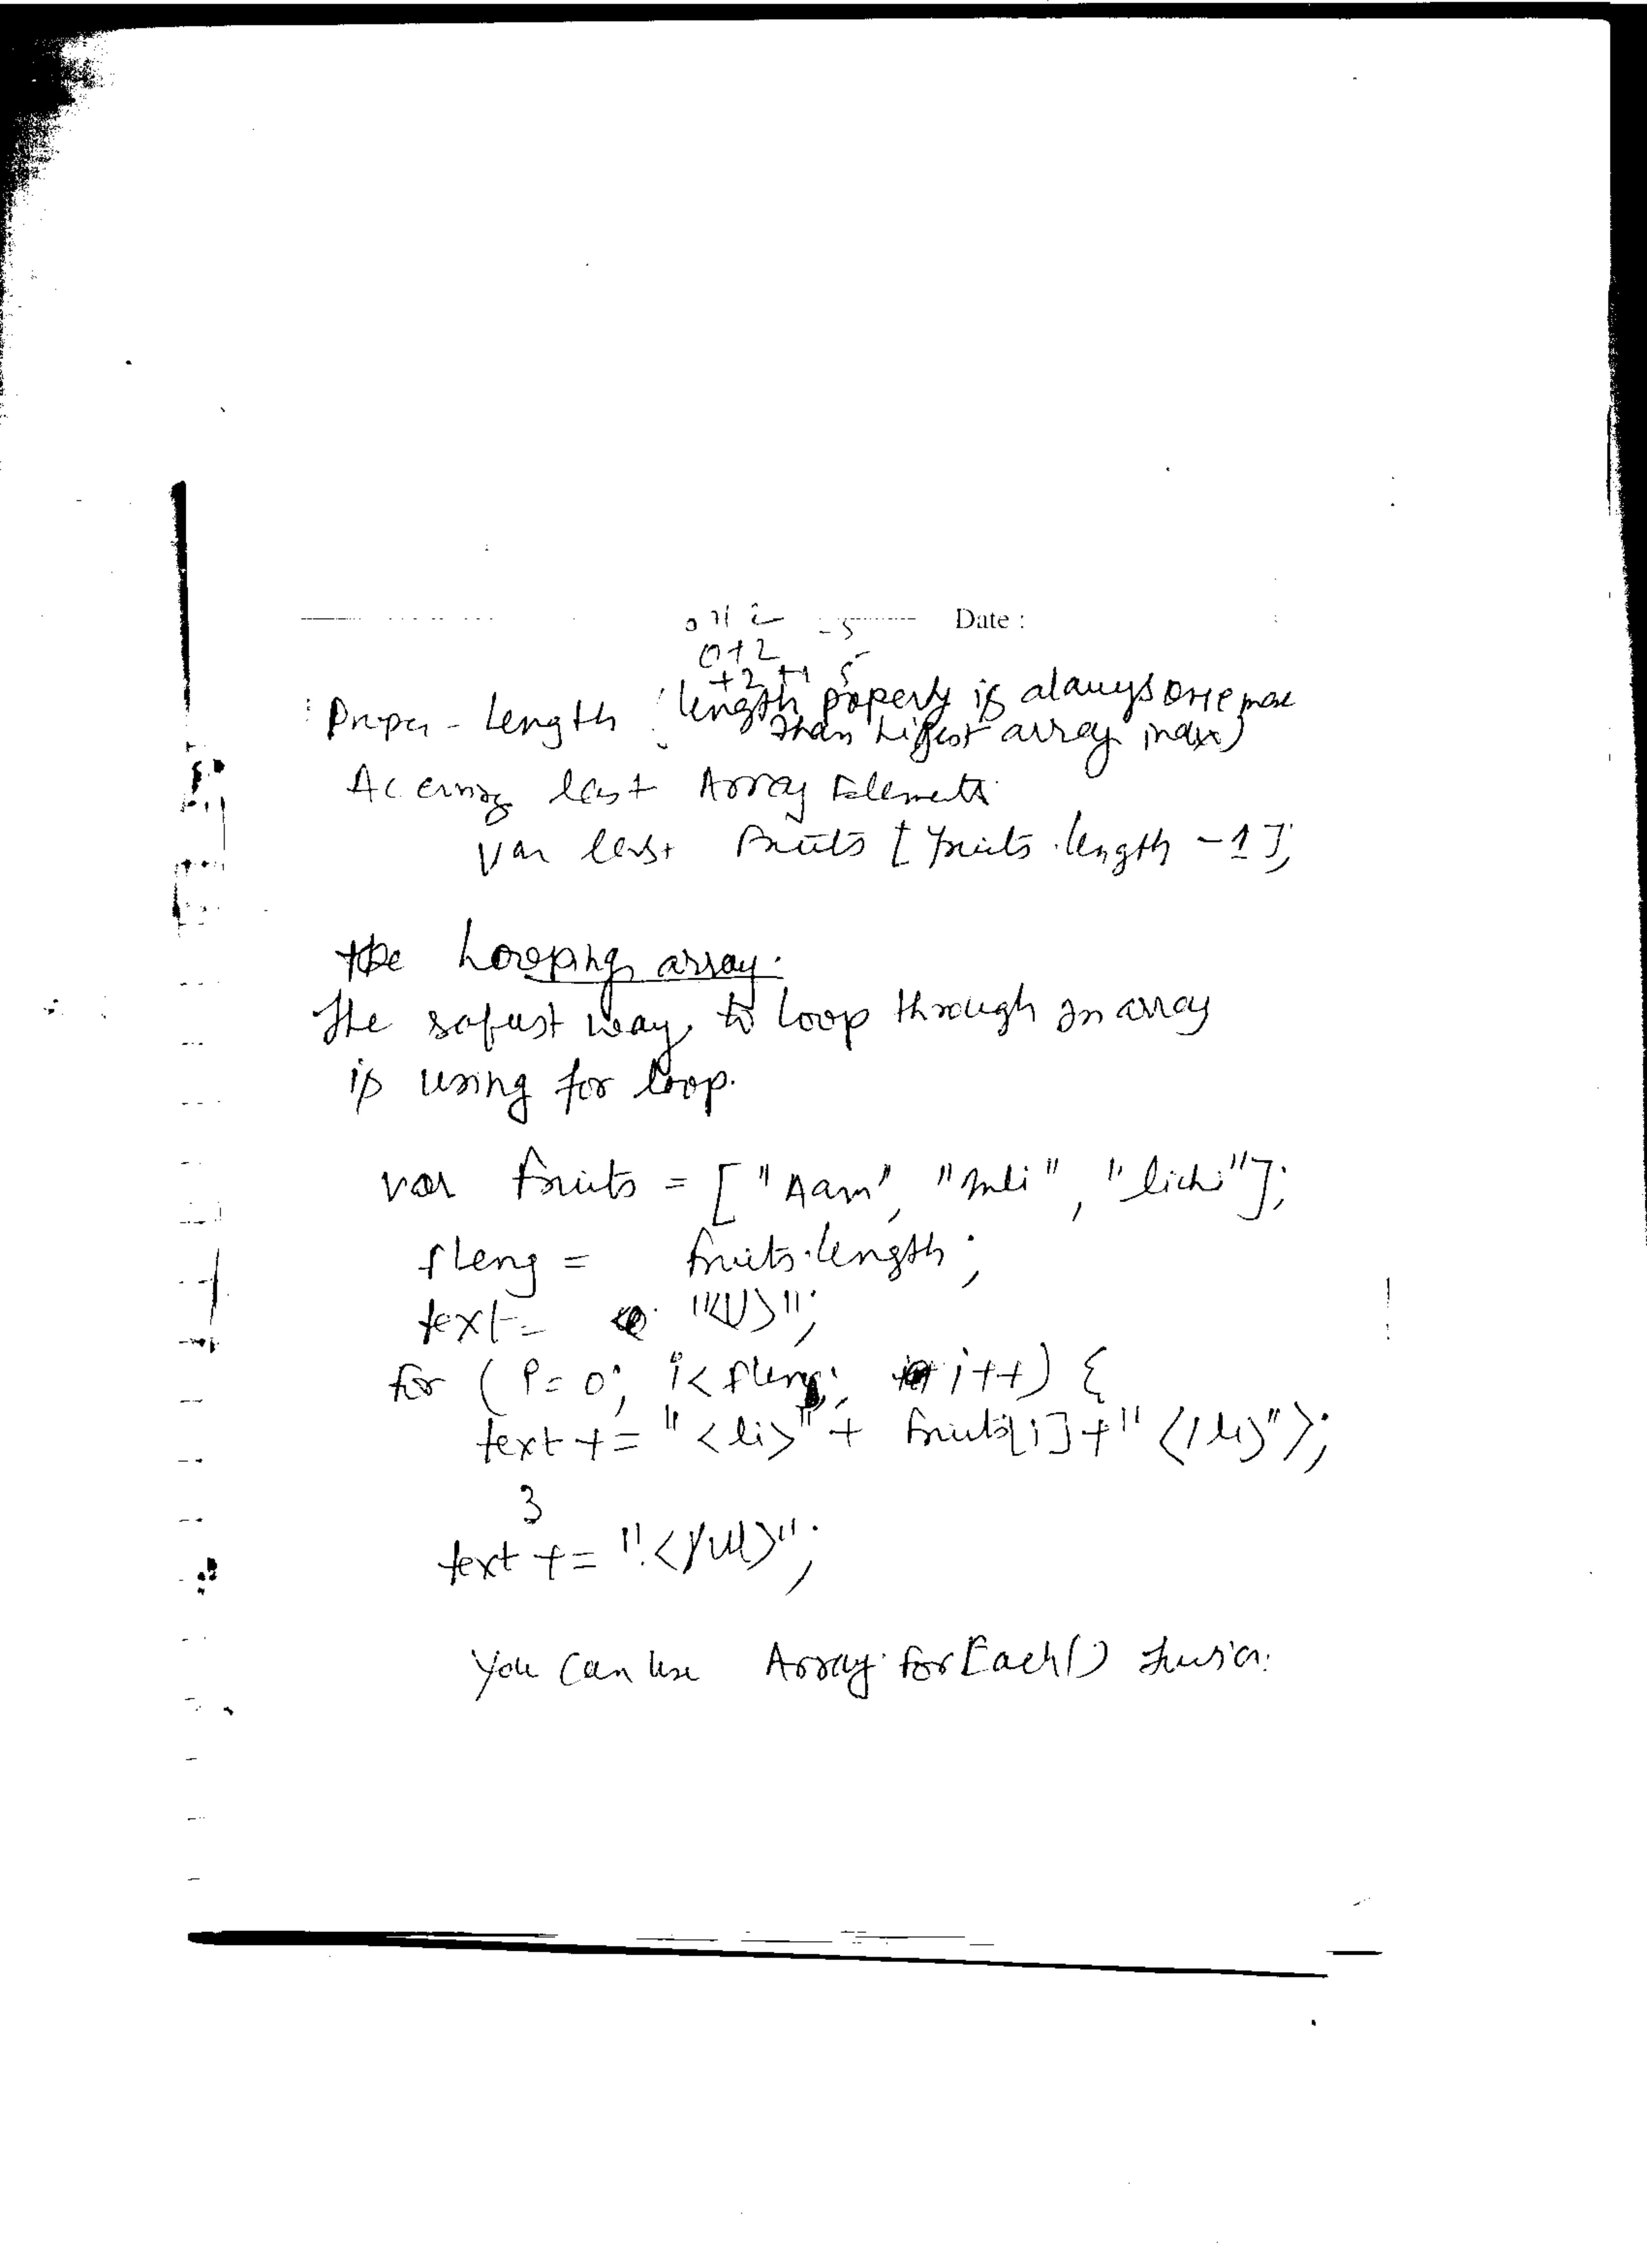 Date :
0+2
+2 +1 5
Proper - Length (length property is always one more
than higest array index)
Accessing last Array Elements
var last fruits [fruits.length -1];
the Looping array.
The safest way to loop through an array
is using for loop.
var fruits = ["Aam", "Imli", "lichi"];
fleng = fruits.length;
text = "<U>";
for (i=0; i<fleng; i++) {
text += "<li>" + fruits[i] + "</li>");
}
text += "</ul>";
You can use Array.forEach()